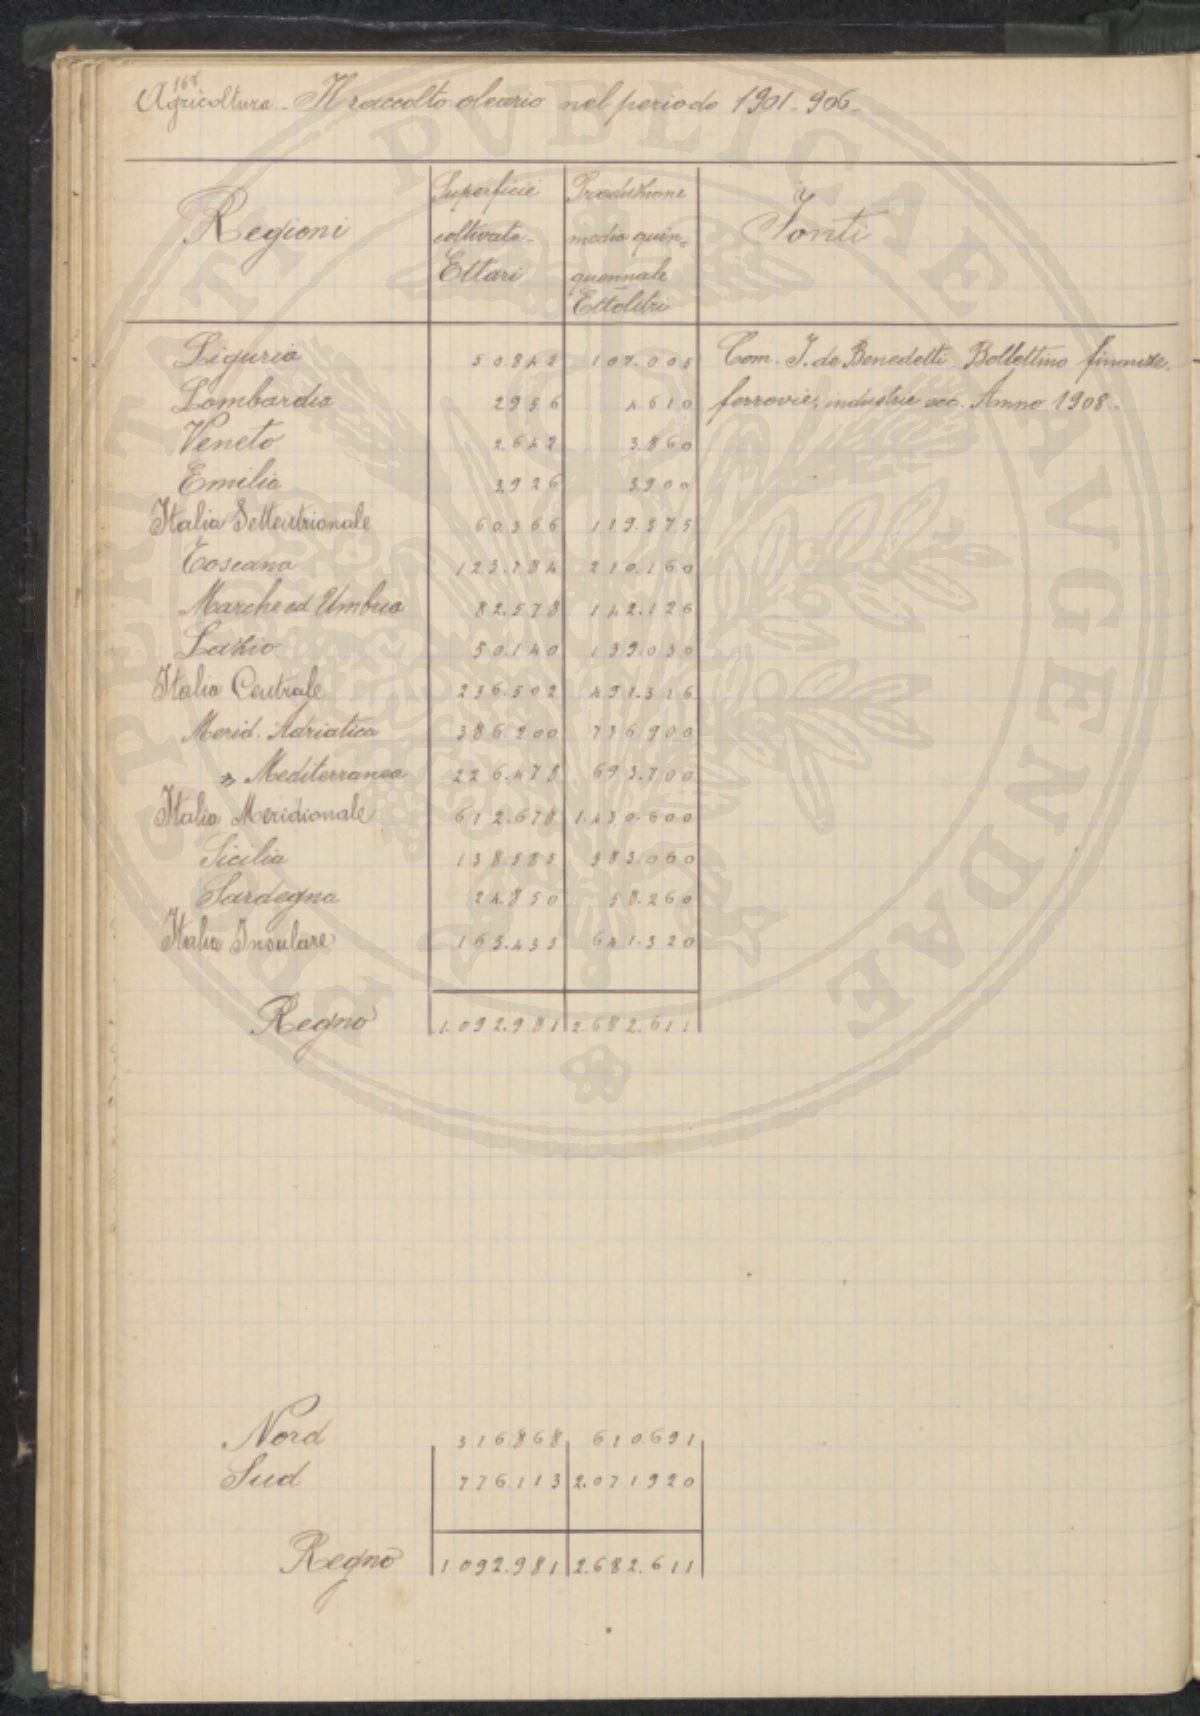 168
Agricoltura - Il raccolto oleario nel periodo 1901-906-
Regioni Superficie coltivata - Ettari Produzione media quin=quennale Ettolitri Fonti
Liguria 50842 107.005 Com. I. de Benedetti Bollettino finanze,
Lombardia 2956 4610 ferrovie, industrie ecc. Anno 1908.
Veneto 2642 3860
Emilia 3926 3900
Italia Settentrionale 60366 119.375
Toscana 123.784 210.160
Marche ed Umbria 82.578 142.126
Lazio 50.140 139.030
Italia Centrale 256.502 491.316
Merid. Adriatica 386.200 736.900
" Mediterranea 226.478 693.700
Italia Meridionale 612.678 1.430.600
Sicilia 138.585 583.060
Sardegna 24.850 58.260
Italia Insulare 163.435 641.320
Regno 1.092.981 2.682.611
Nord 316.868 610.691
Sud 776.113 2.071.920
Regno 1.092.981 2.682.611
PROSPERITATI PVBLICAE AVGENDAE